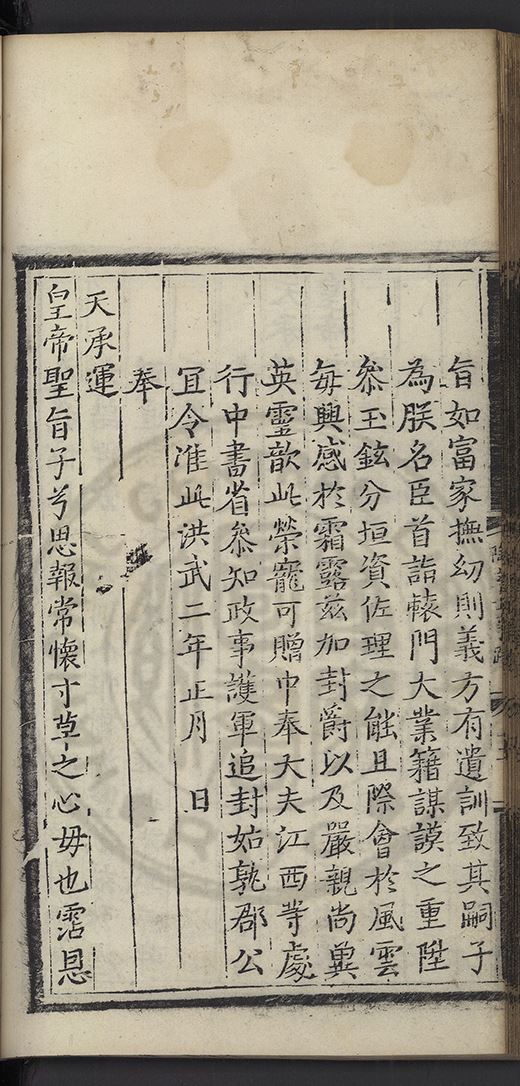 旨如富家撫幼則義方有遺訓致其嗣子
為朕名臣首詣轅門大業籍謀謨之重陞
叅玉鉉分垣資佐理之能且際會於風雲
每興感於霜露茲加封爵以及嚴親尚冀
英靈歆此榮寵可贈中奉大夫江西等處
行中書省叅知政事護軍追封姑孰郡公
宜令准此洪武二年正月　日
奉
天承運
皇帝聖旨子兮思報常懷寸草之心毋也霑恩